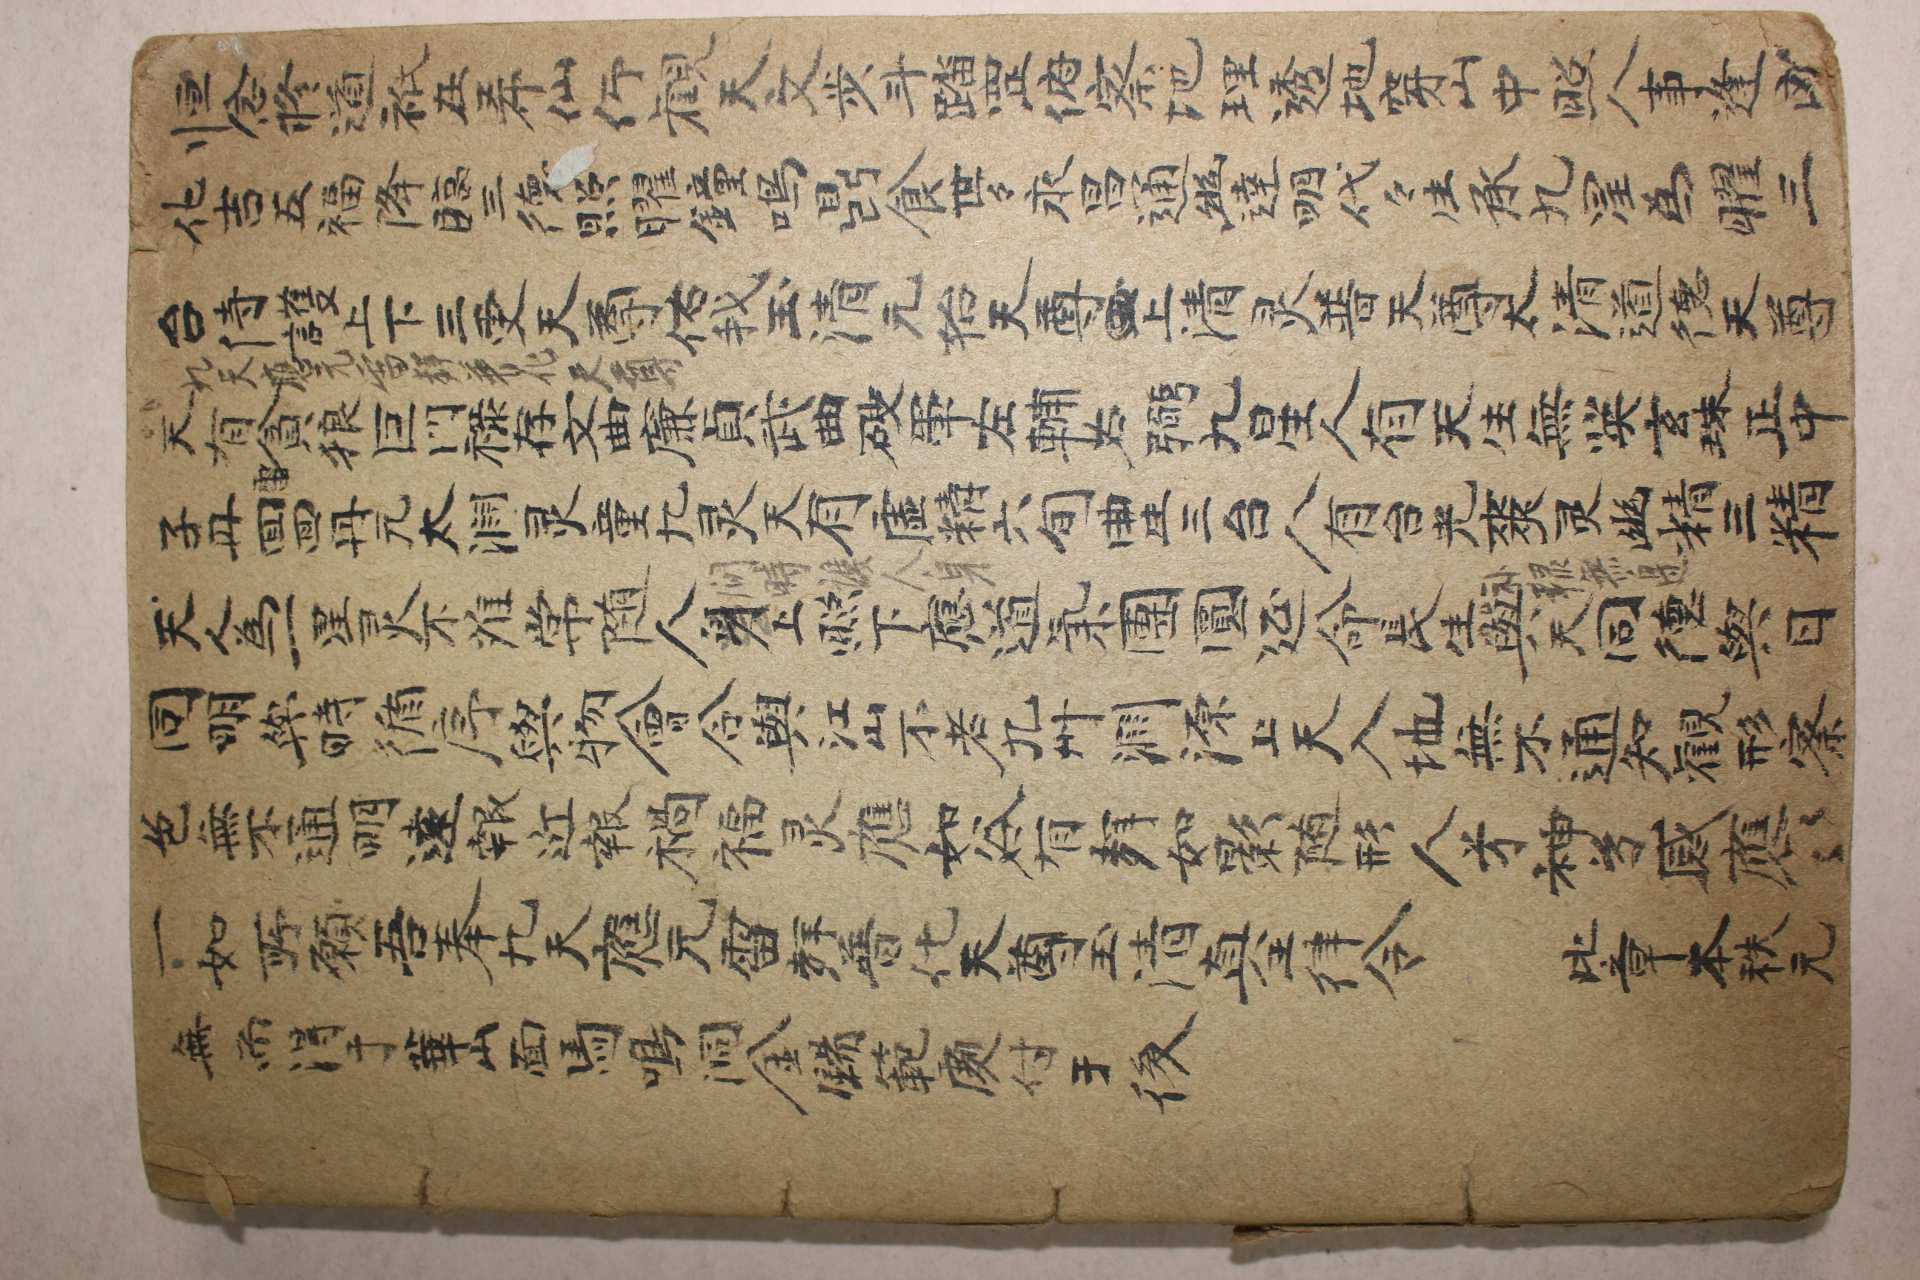 恒念修道祇在希仙仰觀天文步斗踏罡俯察地理透地穿山中照人事逢凶
化吉五福降臨三德照曜鐘鳴鼎食世々永昌通幽達明代々生承九星為曜三
台侍護上下三更天尊佑我玉清元始天尊上清灵普天尊太清道德天尊
九天應元雷天尊
天有貪狼巨門祿存文曲廉貞武曲破軍左輔右弼九星人有天生無英玄珠正中
子丹回回丹元太淵灵童九灵天有虛精六旬曲生三台人有台光爽灵幽精三精
雷
天人為一星灵不难常随人身上照下應道氣團圓延命長生與天同德與日
同明與時循序與物會合與江山不老九州淵源上天入地無不通知觀形察
色無不通明遠報近報禍福灵應如谷有声如影随形人兮神兮感應
一如所願吾奉九天應元雷声普化天尊玉清真王律令　此章本秩元
無而淂于華山面馬鳴洞金錫範處付于後